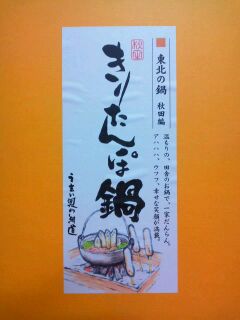 東北の鍋 秋田編
きりたんぽ鍋
温もりの、田舎のお鍋で、一家だんらん。
アハハハ、ウフフ、幸せな笑顔が満載。
うまい処の御達